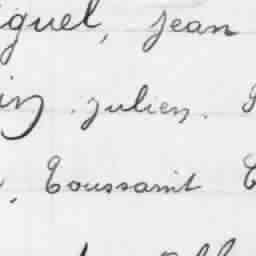 iguel, Jean
in, Julien.
, Toussaint